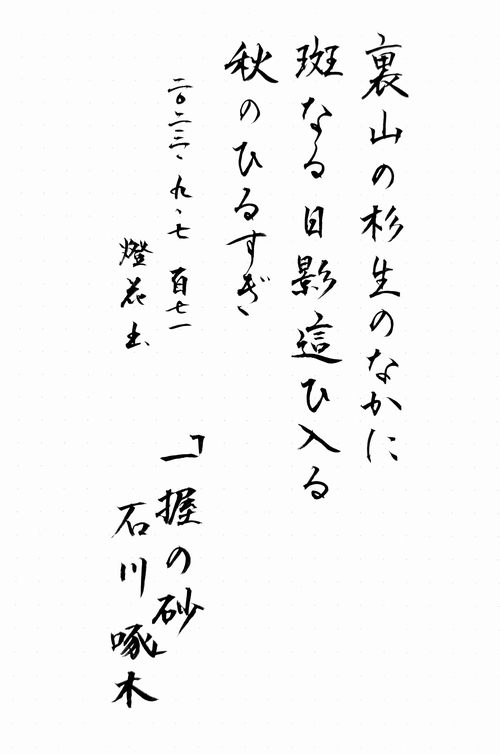 裏山の杉生のなかに
斑なる日影這ひ入る
秋のひるすぎ
二〇二三、九、七 百七一
燈花出
「一握の砂」
石川啄木